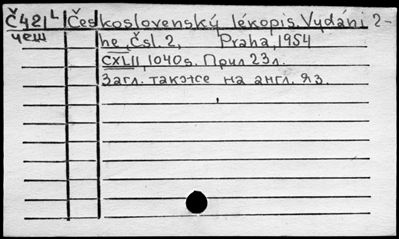 Č421 L Československý lékopis. Vydání 2-
чеш he, čsl. 2, Praha, 1954
CXLII, 1040 s. Прил 23 л.
Загл. также на англ. яз.